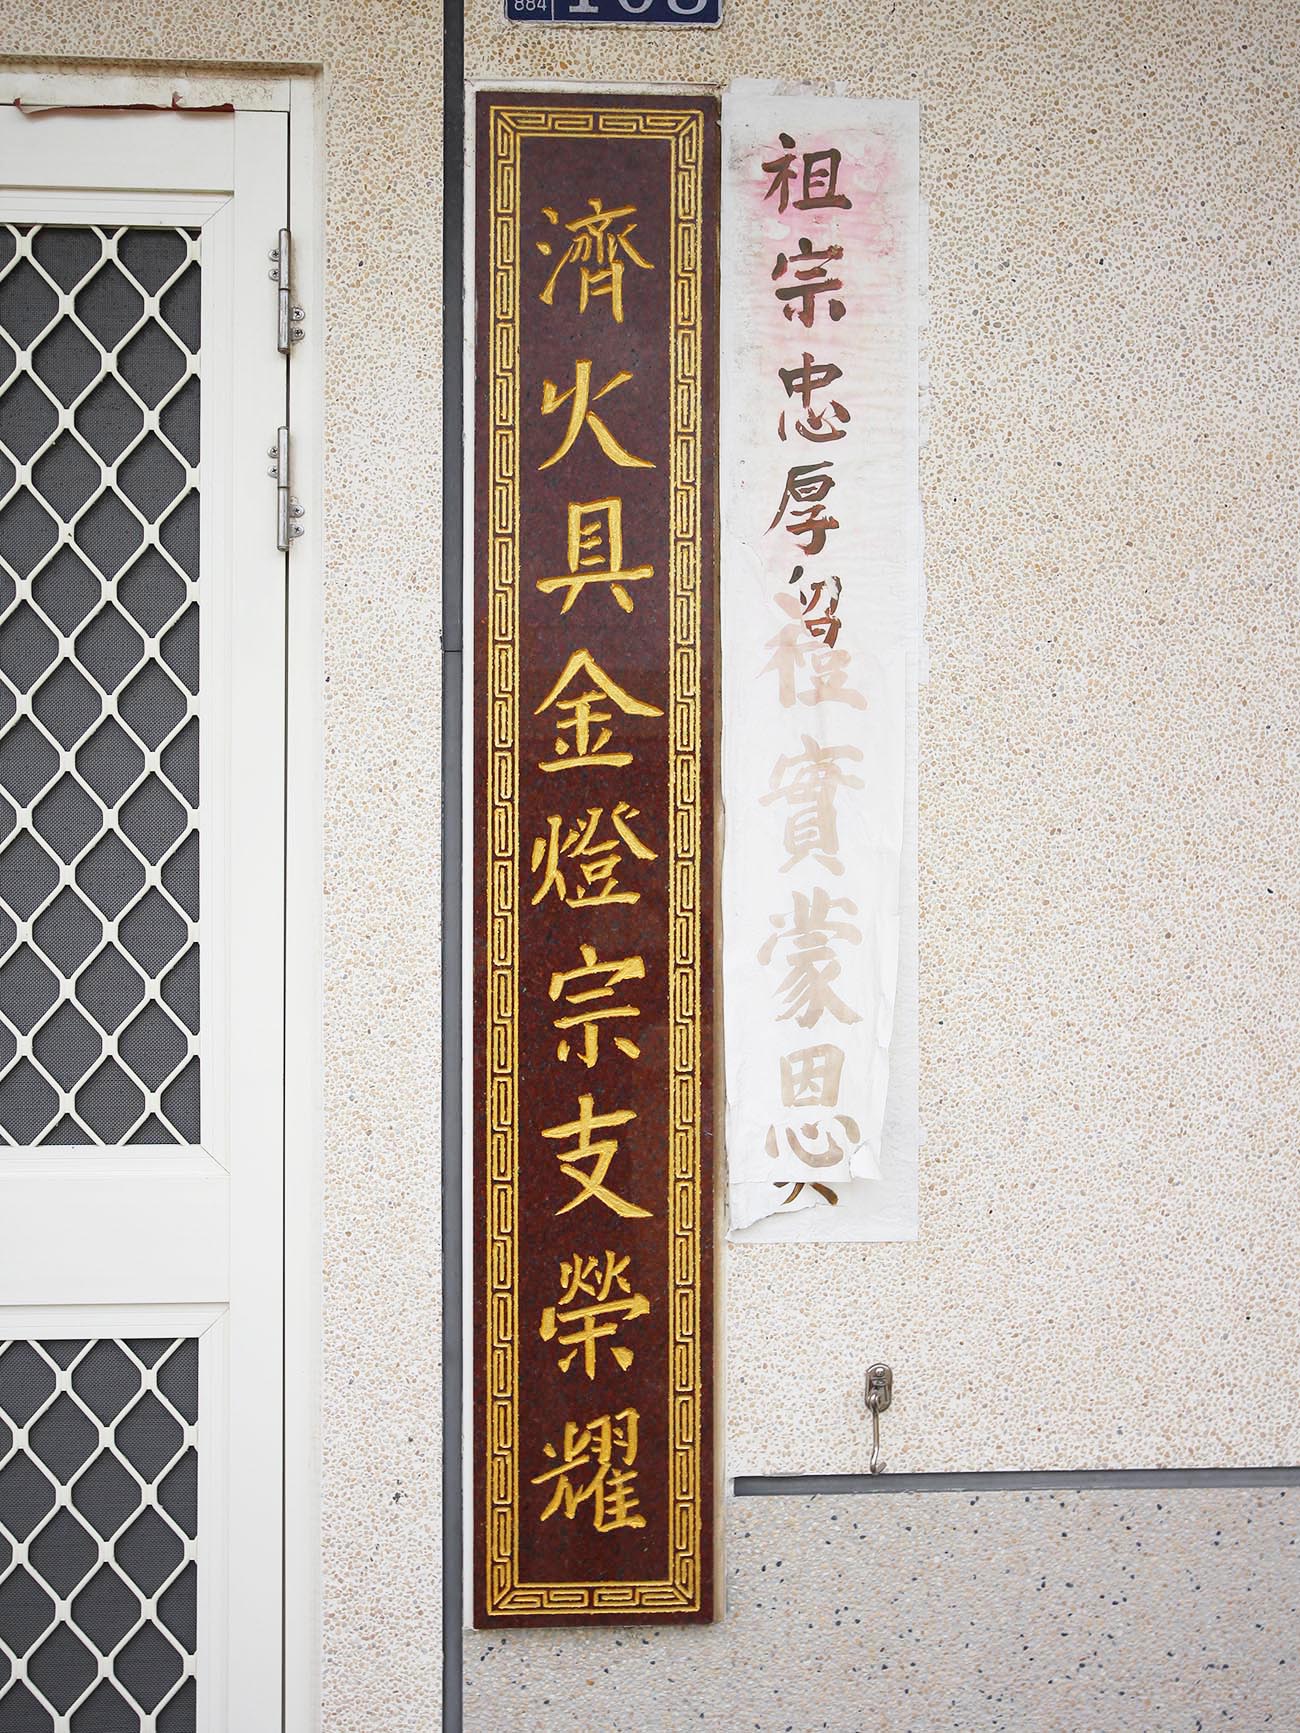 884
108
祖宗忠厚留
禮實蒙恩
濟火具金燈宗支榮耀